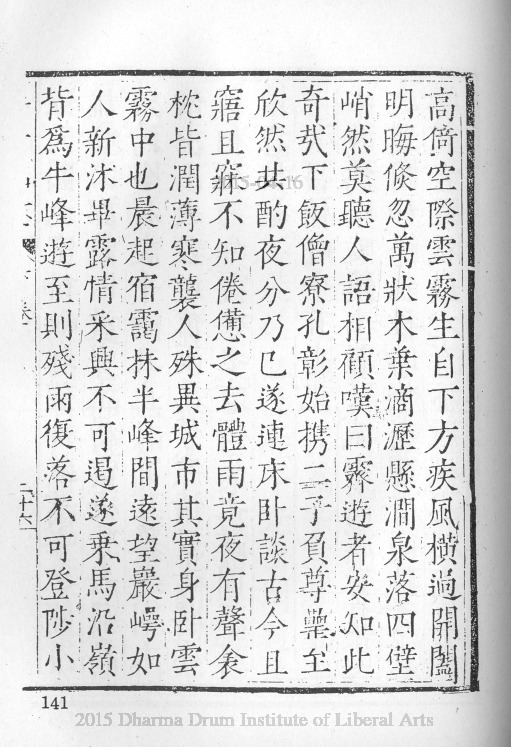 高倚空際雲霧生自下方疾風橫過開闔
明晦倏忽萬狀木葉滴瀝懸澗泉落四壁
峭然莫聽人語相顧嘆曰霽遊者安知此
奇㢤下飯僧寮孔彰始携二子負尊罍至
欣然共酌夜分乃已遂連床卧談古今且
寤且寐不知倦憊之去體雨竟夜有聲衾
枕皆潤薄寒襲人殊異城市其實身卧雲
霧中也晨起宿靄抹半峰間遠望巖崿如
人新沐畢露情采興不可遏遂乘馬沿嶺
背爲牛峰遊至則殘雨復落不可登陟小
二十六
141
2015 Dharma Drum Institute of Liberal Arts